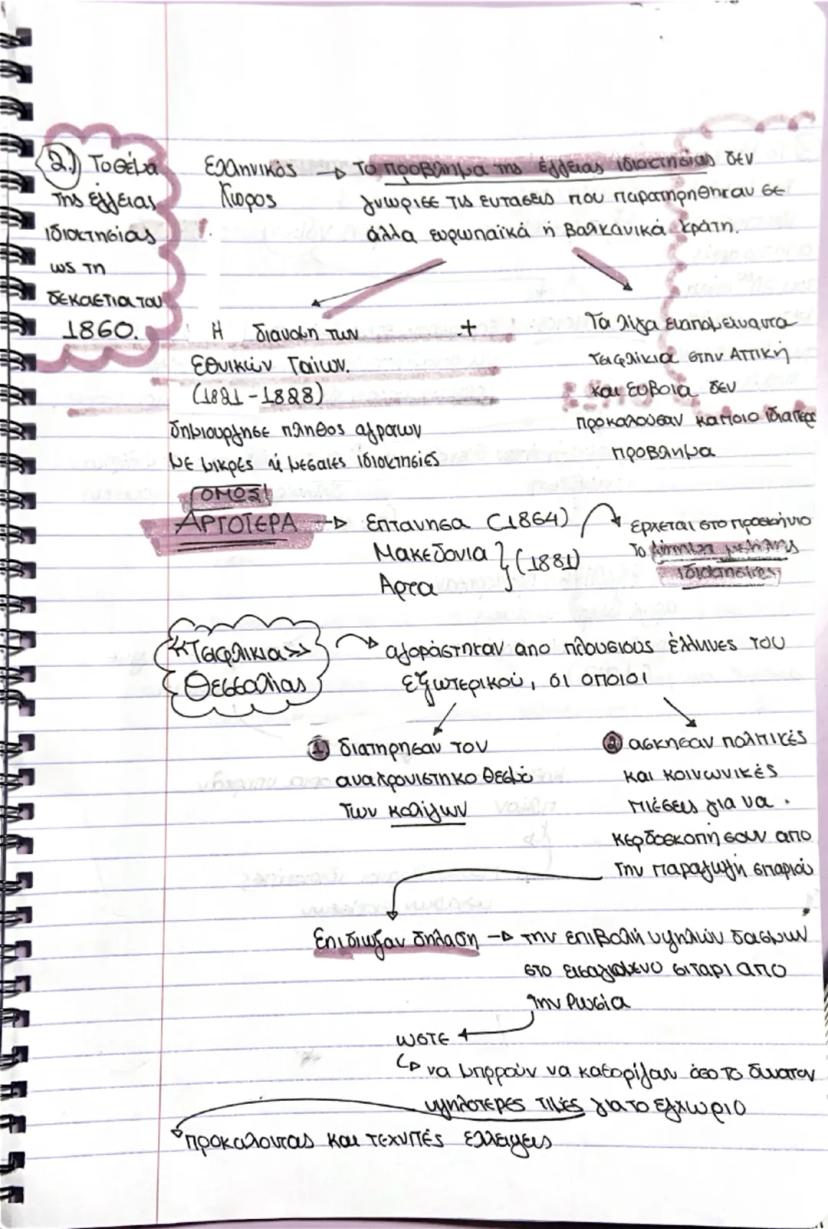 2.) Το θέμα
της έγγειας
ιδιοκτησίας
ως τη
δεκαετια του
1860.
Ελληνικός → Το πρόβλημα της έγγειας ιδιοκτησίας δεν
Χωρος γνωρισε τις εντασεις που παρατηρηθηκαν σε
άλλα ευρωπαϊκά ή βαλκανικά κράτη.
Η διανομή των +
Εθνικών Γαίων.
(1821-1828)
δημιουργησε πληθος αγροτων
με μικρές ή μεσαιές ιδιοκτησιές
Τα λίγα εναπομείναντα
τσιφλίκια στην Αττική
και Ευβοια δεν
προκαλούσαν καποιο ιδιαιτερο
προβλημα
ΟΜΩΣ
ΑΡΓΟΤΕΡΑ → Επτανησα (1864)
Μακεδονια } (1881)
Αρτα
έρχεται στο προσκήνιο
το ζήτημα μεγάλης
ιδιοκτησίας
«Τσιφλικια»
Θεσσαλίας
αγοράστηκαν απο πλουσιους έλληνες του
εξωτερικού, οι οποιοι
1) διατηρησαν τον
αναχρονιστηκο θεσμό
των κολίγων
2) ασκησαν πολιτικές
και κοινωνικές
πιέσεις για να
κερδοσκοπήσουν απο
την παραγωγή σιταριού
Επιδιωξαν δηλαδη → την επιβολή υψηλών δασμων
στο εισαγόμενο σιταρι απο
την Ρωσια
ωστε
να μπορούν να καθορίζουν όσο το δυνατον
υψηλοτερες τιμές για το εγχωριο
προκαλουτας και τεχνητές ελλειψεις